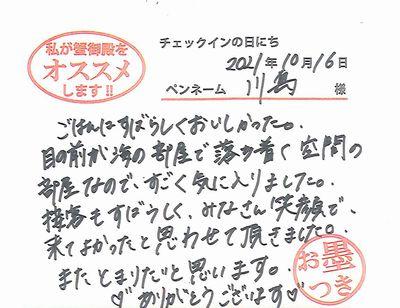 私が蟹御殿を
オススメ
します!!
チェックインの日にち
2021年10月16日
ペンネーム 川島 様
ごはんはすばらしくおいしかった。
目の前が海の部屋で落ち着く空間の
部屋なので、すごく気に入りました。
接客もすばらしく、みなさん笑顔で、
来てよかったと思わせて頂きました。
またとまりたいと思います。
♡ありがとうございます♡
お墨
つき